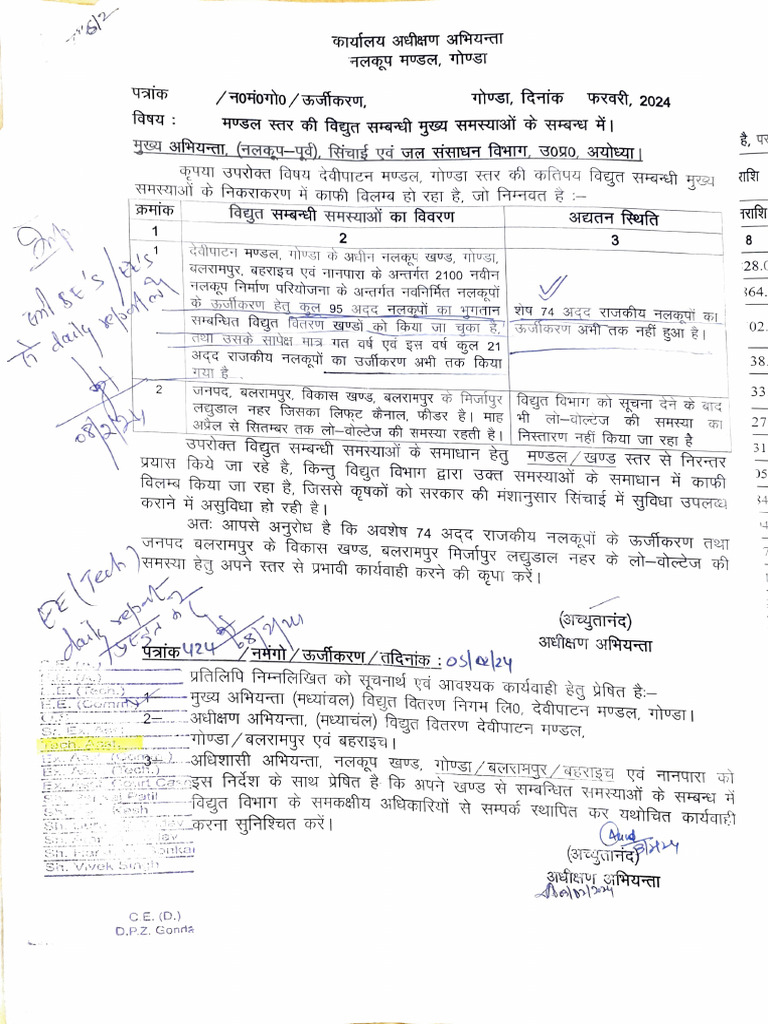 कार्यालय अधीक्षण अभियन्ता
नलकूप मण्डल, गोण्डा
पत्रांक /न0मं0गो0/ऊर्जीकरण, गोण्डा, दिनांक फरवरी, 2024
विषय : मण्डल स्तर की विद्युत सम्बन्धी मुख्य समस्याओं के सम्बन्ध में।
मुख्य अभियन्ता, (नलकूप–पूर्व), सिंचाई एवं जल संसाधन विभाग, उ0प्र0, अयोध्या।
कृपया उपरोक्त विषय देवीपाटन मण्डल, गोण्डा स्तर की कतिपय विद्युत सम्बन्धी मुख्य
समस्याओं के निकराकरण में काफी विलम्ब हो रहा है, जो निम्नवत है :–
क्रमांक विद्युत सम्बन्धी समस्याओं का विवरण अद्यतन स्थिति
1 2 3
1 देवीपाटन मण्डल, गोण्डा के अधीन नलकूप खण्ड, गोण्डा,
बलरामपुर, बहराइच एवं नानपारा के अन्तर्गत 2100 नवीन
नलकूप निर्माण परियोजना के अन्तर्गत नवनिर्मित नलकूपों
के ऊर्जीकरण हेतु कुल 95 अद्द नलकूपों का भुगतान
सम्बन्धित विद्युत वितरण खण्डों को किया जा चुका है,
तथा उसके सापेक्ष मात्र गत वर्ष एवं इस वर्ष कुल 21
अद्द राजकीय नलकूपों का उर्जीकरण अभी तक किया
गया है
शेष 74 अद्द राजकीय नलकूपों का
ऊर्जीकरण अभी तक नहीं हुआ है।
2 जनपद, बलरामपुर, विकास खण्ड, बलरामपुर के मिर्जापुर
लद्युडाल नहर जिसका लिफ्ट कैनाल, फीडर है। माह
अप्रैल से सितम्बर तक लो–वोल्टेज की समस्या रहती है।
विद्युत विभाग को सूचना देने के बाद
भी लो–वोल्टेज की समस्या का
निस्तारण नहीं किया जा रहा है
उपरोक्त विद्युत सम्बन्धी समस्याओं के समाधान हेतु मण्डल/खण्ड स्तर से निरन्तर
प्रयास किये जा रहे है, किन्तु विद्युत विभाग द्वारा उक्त समस्याओं के समाधान में काफी
विलम्ब किया जा रहा है, जिससे कृषकों को सरकार की मंशानुसार सिंचाई में सुविधा उपलब्ध
कराने में असुविधा हो रही है।
अतः आपसे अनुरोध है कि अवशेष 74 अद्द राजकीय नलकूपों के ऊर्जीकरण तथा
जनपद बलरामपुर के विकास खण्ड, बलरामपुर मिर्जापुर लद्युडाल नहर के लो–वोल्टेज की
समस्या हेतु अपने स्तर से प्रभावी कार्यवाही करने की कृपा करें।
EE (Tech)
daily report
08/2/24
(अच्युतानंद)
अधीक्षण अभियन्ता
पत्रांक 424 /नमंगो/ऊर्जीकरण/तदिनांक : 05/02/24
प्रतिलिपि निम्नलिखित को सूचनार्थ एवं आवश्यक कार्यवाही हेतु प्रेषित है:–
मुख्य अभियन्ता (मध्यांचल) विद्युत वितरण निगम लि0, देवीपाटन मण्डल, गोण्डा।
2– अधीक्षण अभियन्ता, (मध्याचंल) विद्युत वितरण देवीपाटन मण्डल,
गोण्डा/बलरामपुर एवं बहराइच।
3– अधिशासी अभियन्ता, नलकूप खण्ड, गोण्डा/बलरामपुर/बहराइच एवं नानपारा को
इस निर्देश के साथ प्रेषित है कि अपने खण्ड से सम्बन्धित समस्याओं के सम्बन्ध में
विद्युत विभाग के समकक्षीय अधिकारियों से सम्पर्क स्थापित कर यथोचित कार्यवाही
करना सुनिश्चित करें।
(अच्युतानंद)
अधीक्षण अभियन्ता
Sh. Vivek Singh
C.E. (D.)
D.P.Z. Gonda
SE'S / EE'S
daily report
08/2/24